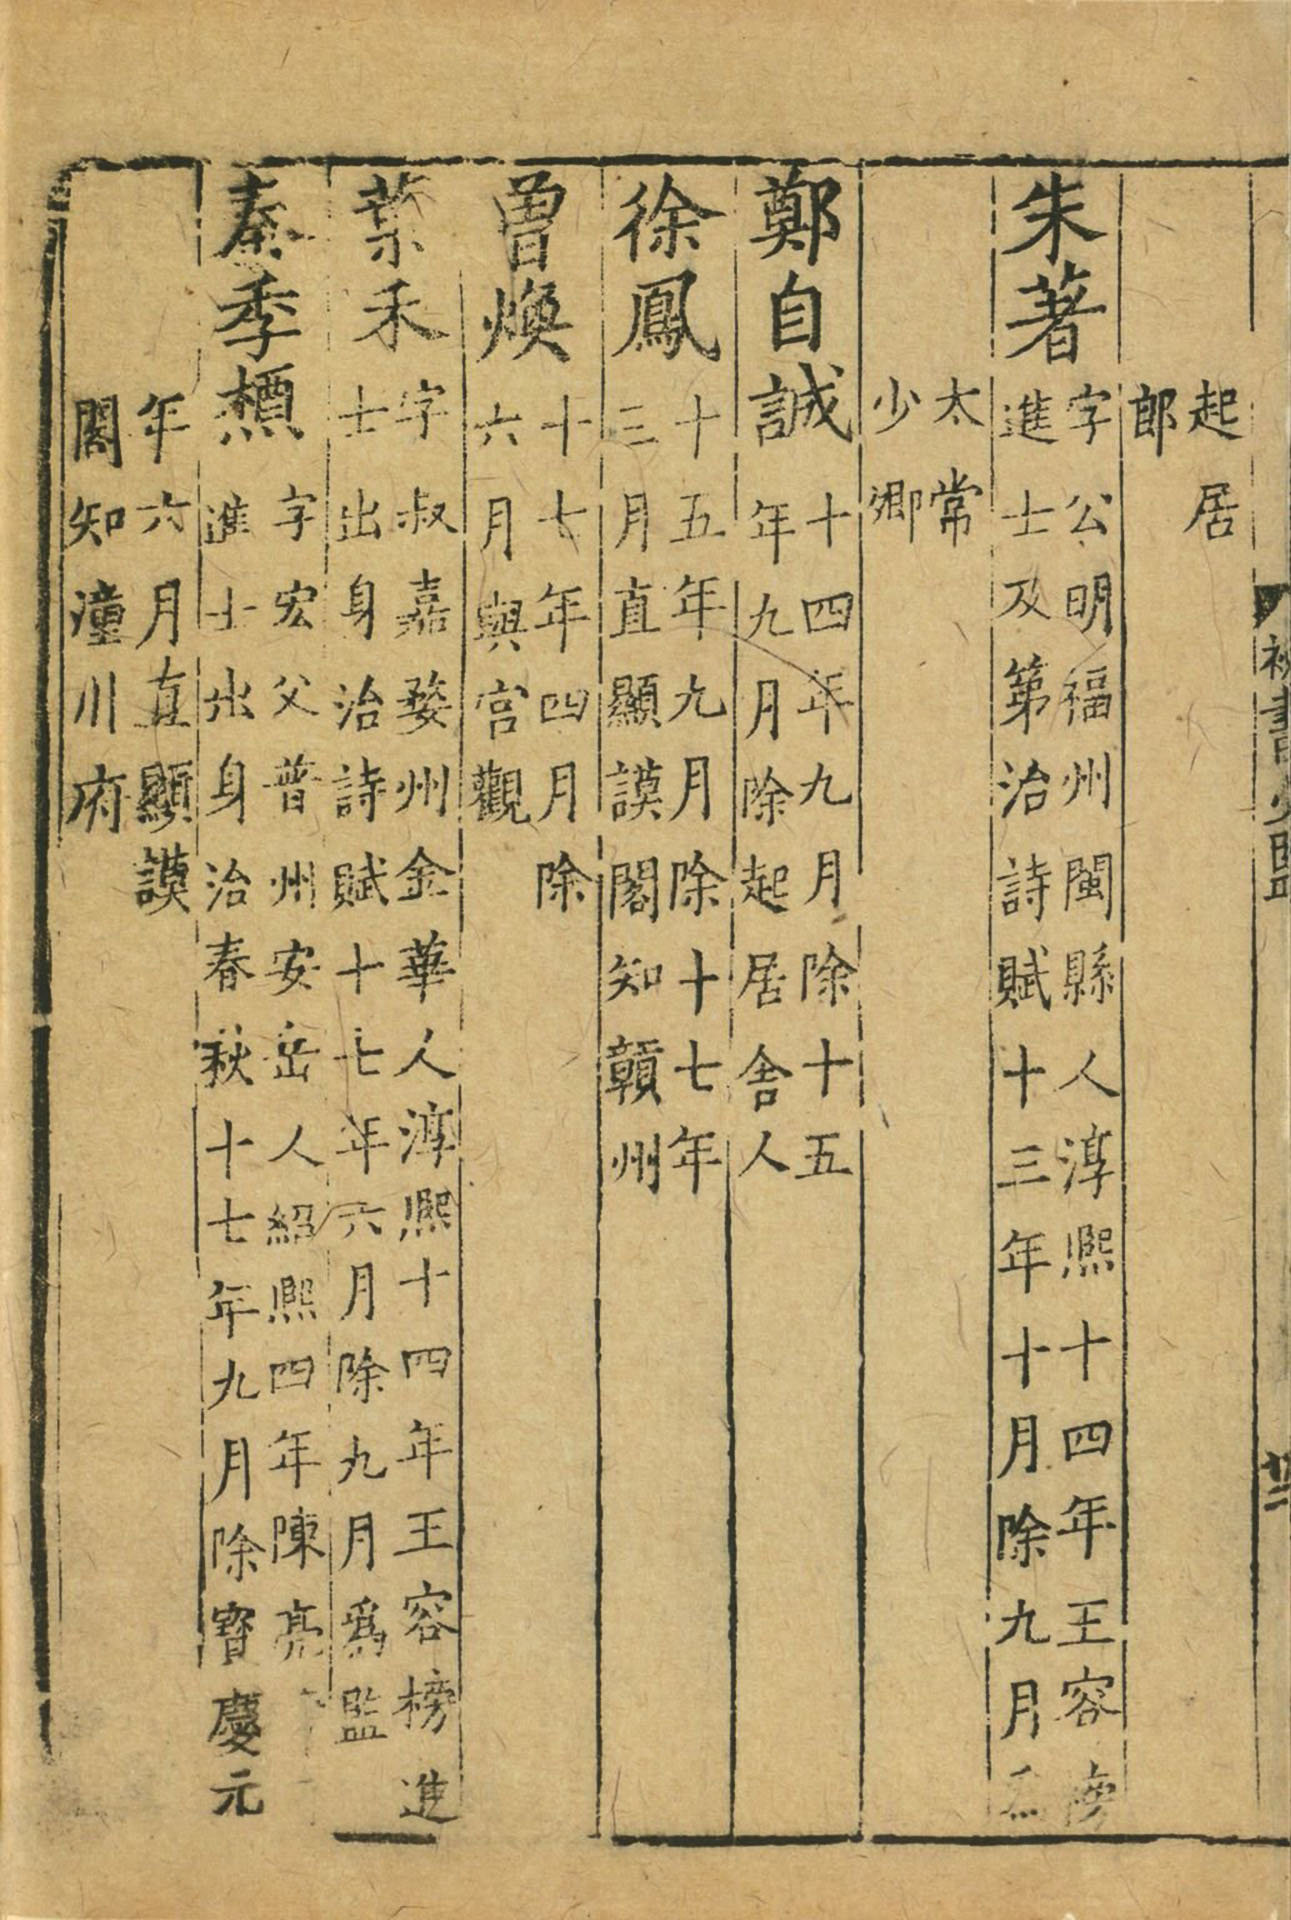 起居
郎
朱著
字公明福州閩縣人淳熙十四年王容榜
進士及第治詩賦十三年十月除九月爲
太常
少卿
鄭自誠
十四年九月除十五
年九月除起居舍人
徐鳳
十五年九月除十七年
三月直顯謨閣知贛州
曾煥
十七年四月除
六月與宫觀
葉禾
字叔嘉婺州金華人淳熙十四年王容榜進
士出身治詩賦十七年六月除九月爲監
秦季槱
字宏父普州安岳人紹熙四年陳亮
進士出身治春秋十七年九月除寳慶元
年六月直顯謨
閣知潼川府